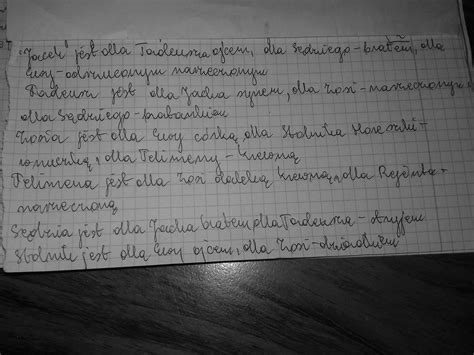 "Jacek" jest dla Tadeusza ojcem, dla Sędziego - bratem, dla
Ewy - odrzuconym narzeczonym
Tadeusz jest dla Jacka synem, dla Zosi - narzeczonym
dla Sędziego - bratankiem
Zosia jest dla Ewy córką, dla Stolnika Horeszki -
wnuczką, dla Telimeny - krewną
Telimena jest dla Zosi daleką krewną, dla Rejenta -
narzeczoną
Sędzia jest dla Jacka bratem, dla Tadeusza - stryjem
Stolnik jest dla Ewy ojcem, dla Zosi - dziadkiem